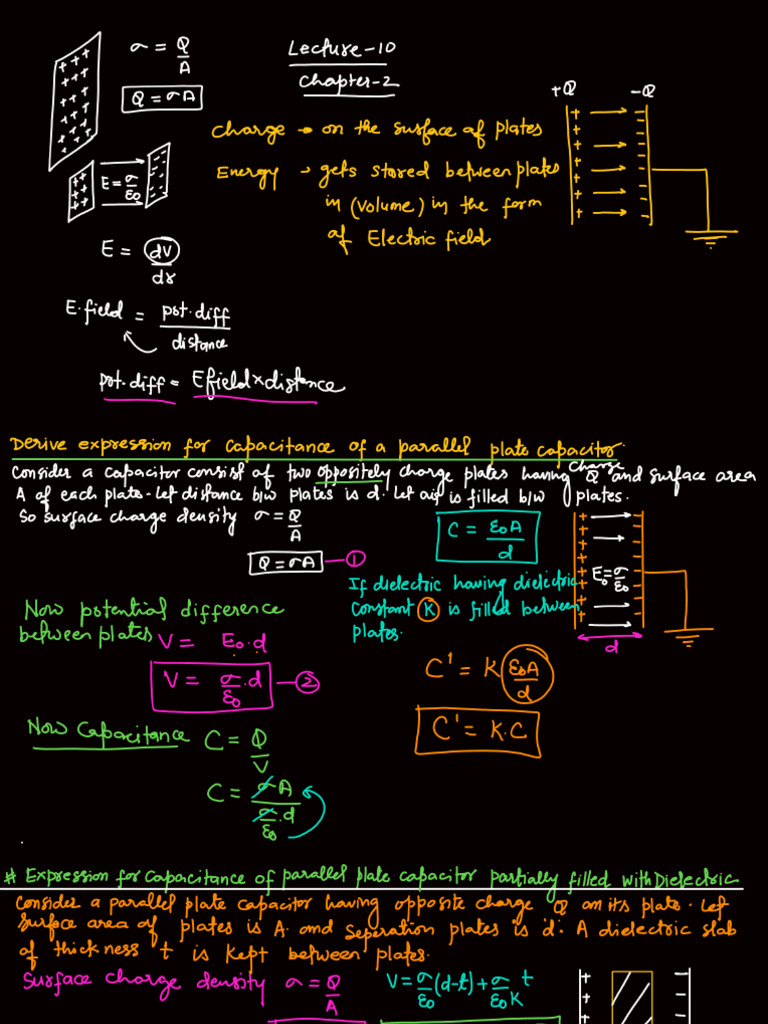 Lecture-10
Chapter-2
σ = Q/A
Q = σA
+Q -Q
Charge → on the surface of plates
Energy → gets stored between plates
in (volume) in the form
of Electric field
E = σ/ε0
E = dV/dr
E.field = pot.diff/distance
pot.diff = Efield×distance
Derive expression for capacitance of a parallel plate capacitor.
Consider a capacitor consist of two oppositely charge plates having charge Q and surface area
A of each plate. Let distance b/w plates is d. Let air is filled b/w plates.
So surface charge density σ = Q/A
Q = σA —①
C = ε0A/d
E0 = σ/ε0
d
If dielectric having dielectric
constant K is filled between
plates.
C' = K ε0A/d
C' = K.C
Now potential difference
between plates V = E0.d
V = σ/ε0 .d —②
Now Capacitance C = Q/V
C = σA/(σ/ε0 .d)
# Expression for capacitance of parallel plate capacitor partially filled with Dielectric
Consider a parallel plate capacitor having opposite charge Q on its plate. Let
surface area of plates is A and seperation plates is 'd'. A dielectric slab
of thickness 't' is kept between plates.
Surface charge density σ = Q/A
V = σ/ε0 (d-t) + σ/ε0K t